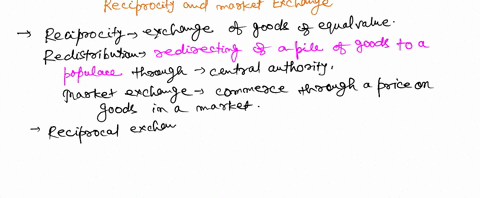 Reciprocity and market Exchange
→ Reciprocity → exchange of goods of equal value.
Redistribution → redirecting of a pile of goods to a
populace through → central authority.
Market exchange → commerce through a price on
goods in a market.
→ Reciprocal exchan